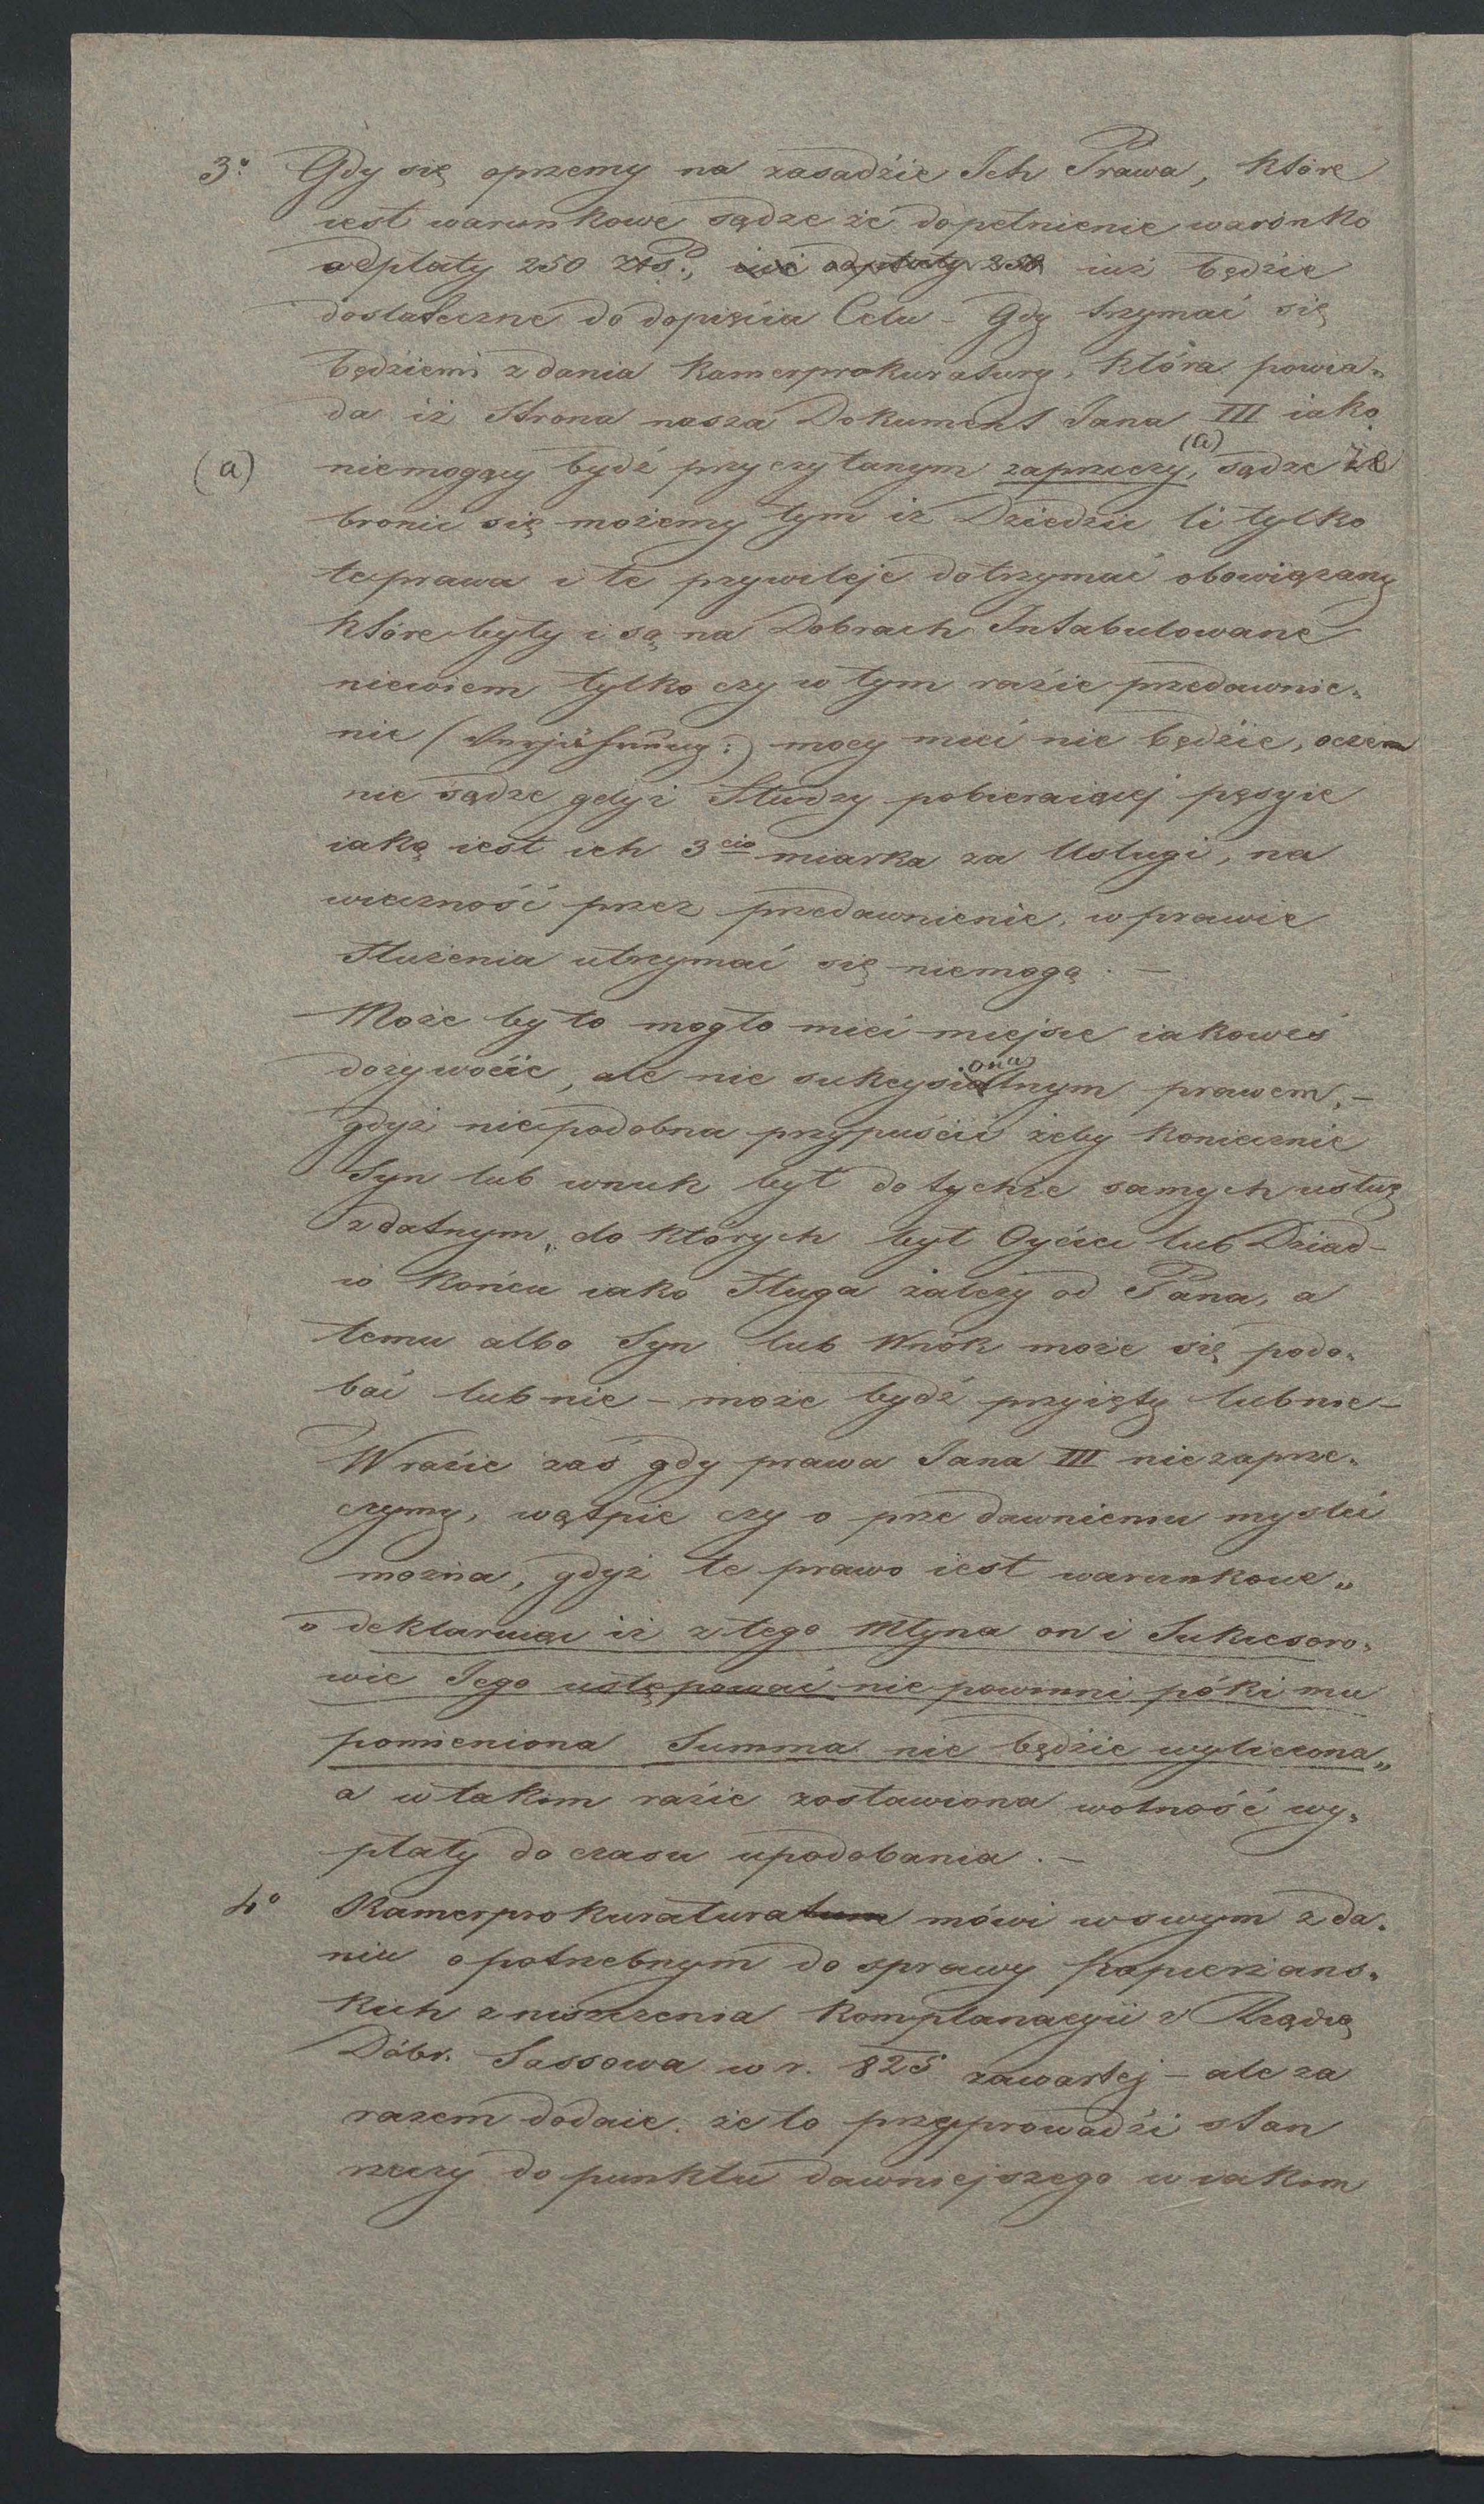 3o Gdy się oprzemy na zasadzie Ich Prawa, które
iest warunkowe sądze że dopełnienie warónko
odpłaty 250 złps., iuż odpłaty 250 iuż będzie
dostateczne do dopięcia Celu - Gdy trzymać się
będziemi zdania Kamerprokuratury, która powia„
da iż Strona nasza Dokument Jana III iako
(a) niemogący bydź przyczytanym zaprzeczy, (a) sądze że
bronić się możemy tym iż Dziedzic li tylko
te prawa i te przywileje dotrzymać obowiązany
które były i są na Dobrach Intabulowane
niewiem tylko czy w tym razie przedawnie„
nie (Verjährung:) mocy mieć nie będzie, oczem
nie sądze gdyż Słudzy pobieraiącej pęsyie
iaką iest ich 3cia miarka za Usługi, na
wieczność przez przedawnienie, w prawie
służenia utrzymać się niemogą. —
Może by to mogło mieć miejsce iakoweś
dożywocie, ale nie sukcysionalnym prawem, —
gdyż niepodobna przypuścić żeby koniecznie
Syn lub wnuk był do tychże samych usług
zdatnym, do których był Oyciec lub Dziad —
w końcu iako Sługa zależy od Pana, a
temu albo Syn lub Wnók może się podo„
bać lub nie — może bydź przyięty lub nie —
W razie zaś gdy prawa Jana III nie zaprze„
czymy, wątpie czy o przedawnieniu mysleć
można, gdyż te prawo iest warunkowe „
o deklaruiąc iż z tego Młyna on i Sukcesoro„
wie Jego ustępować nie powinni póki mu
pomieniona Summa nie będzie wyliczona „
a w takim razie zostawiona wolność wy„
płaty do czasu upodobania. —
4o Kamerprokuratura mówi w swym zda„
niu o potrzebnym do sprawy Papierżans„
kich zniszczenia Komplanacyii z Rządzą
Dóbr. Sassowa w r. 825 zawartej — ale za
razem dodaie że to przyprowadzi stan
rzeczy do punktu dawniejszego w iakim